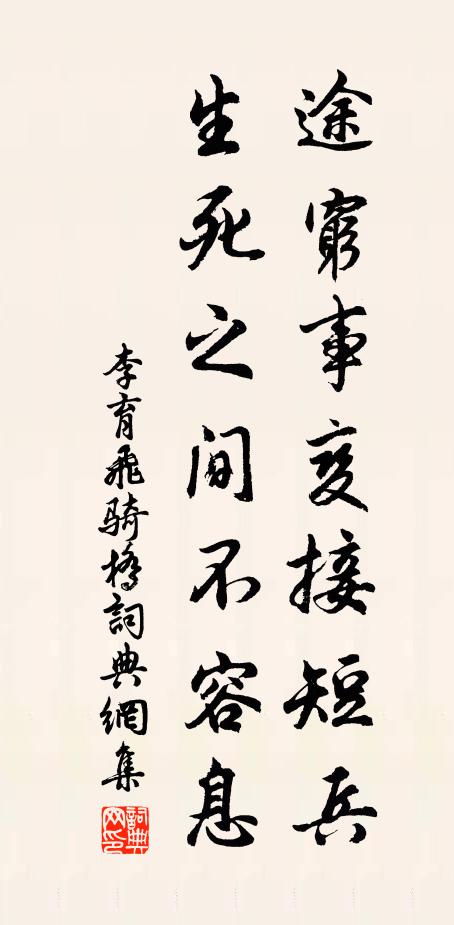 途窮事变接短兵
生死之间不容息
李育飛騎橋詞典網集
詞典網印